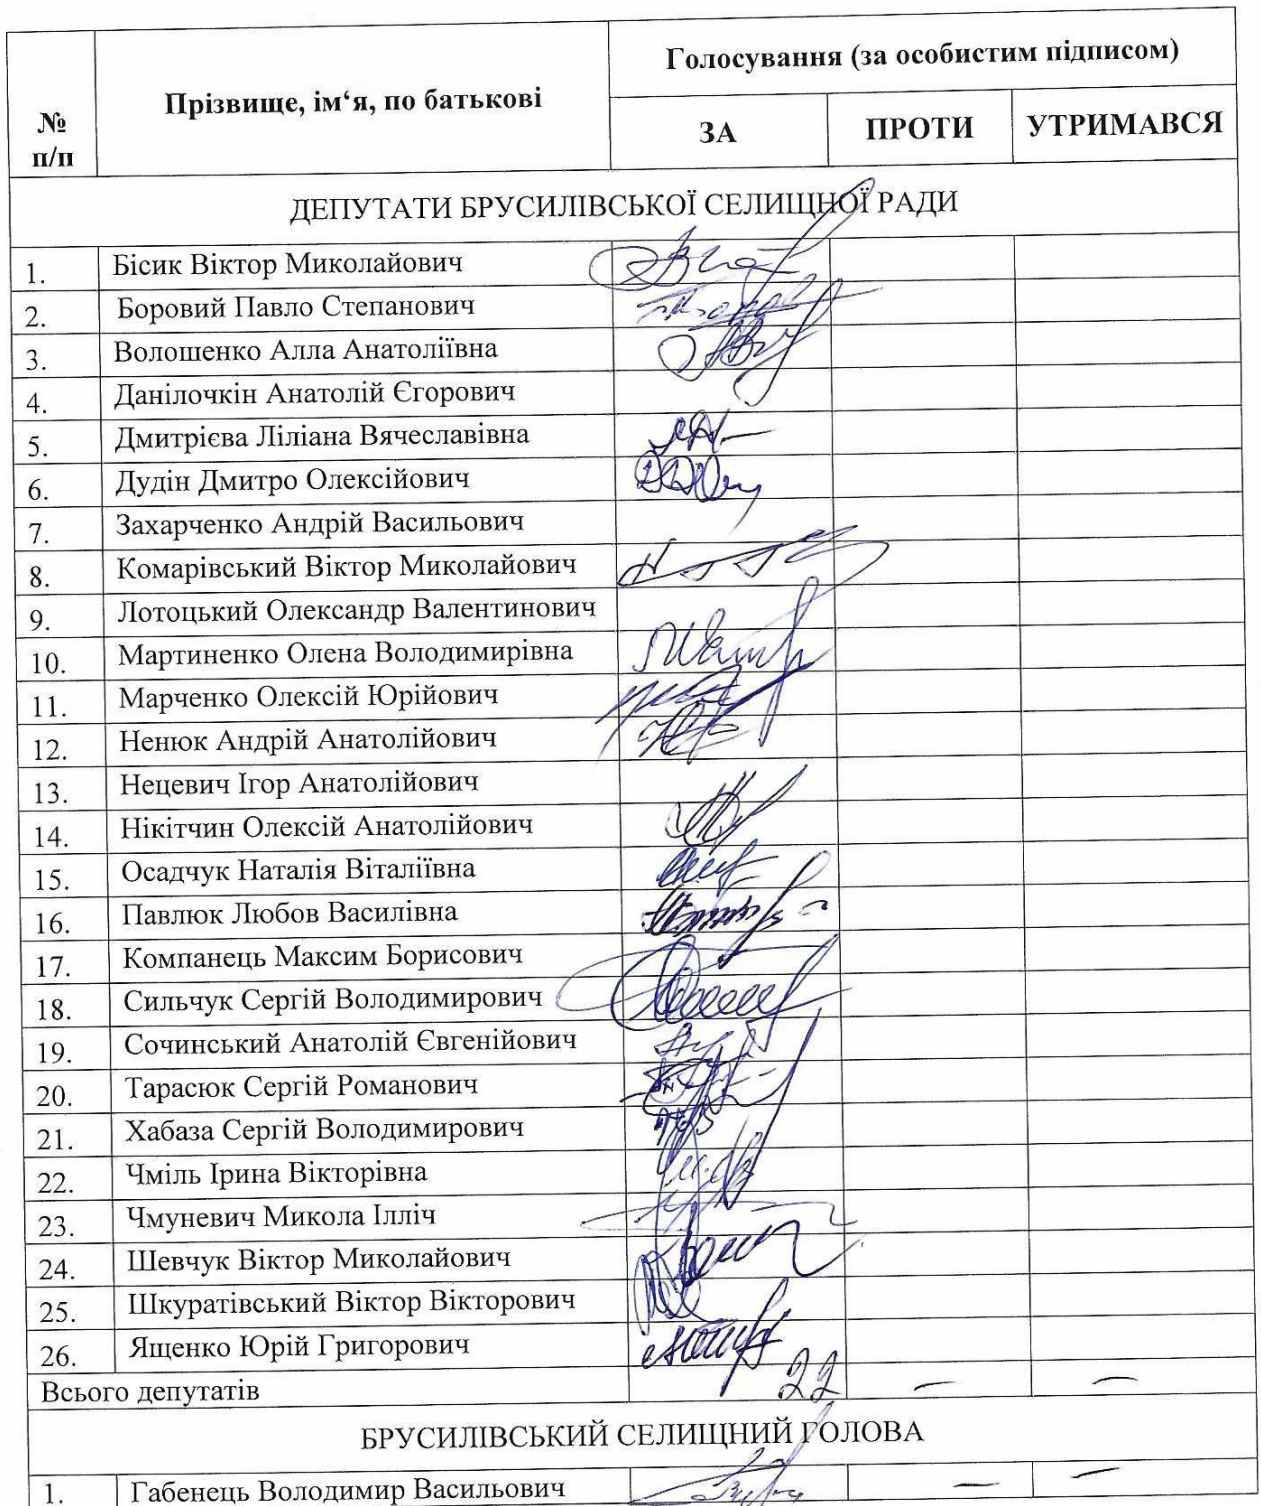 Голосування (за особистим підписом)
№
п/п
Прізвище, ім‘я, по батькові
ЗА ПРОТИ УТРИМАВСЯ
ДЕПУТАТИ БРУСИЛІВСЬКОЇ СЕЛИЩНОЇ РАДИ
1. Бісик Віктор Миколайович
2. Боровий Павло Степанович
3. Волошенко Алла Анатоліївна
4. Данілочкін Анатолій Єгорович
5. Дмитрієва Ліліана Вячеславівна
6. Дудін Дмитро Олексійович
7. Захарченко Андрій Васильович
8. Комарівський Віктор Миколайович
9. Лотоцький Олександр Валентинович
10. Мартиненко Олена Володимирівна
11. Марченко Олексій Юрійович
12. Ненюк Андрій Анатолійович
13. Нецевич Ігор Анатолійович
14. Нікітчин Олексій Анатолійович
15. Осадчук Наталія Віталіївна
16. Павлюк Любов Василівна
17. Компанець Максим Борисович
18. Сильчук Сергій Володимирович
19. Сочинський Анатолій Євгенійович
20. Тарасюк Сергій Романович
21. Хабаза Сергій Володимирович
22. Чміль Ірина Вікторівна
23. Чмуневич Микола Ілліч
24. Шевчук Віктор Миколайович
25. Шкуратівський Віктор Вікторович
26. Ященко Юрій Григорович
Всього депутатів 22 — —
БРУСИЛІВСЬКИЙ СЕЛИЩНИЙ ГОЛОВА
1. Габенець Володимир Васильович — —